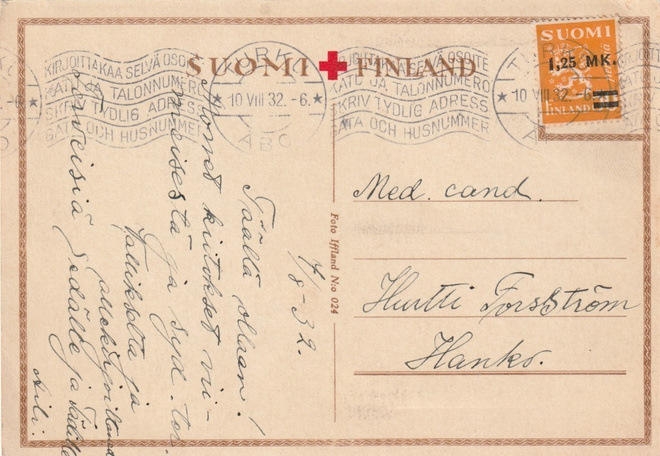 SUOMI FINLAND
SUOMI
1,25 MK.
FINLAND
KIRJOITTAKAA SELVÄ OSOITE
KATU JA TALONNUMERO
SKRIV TYDLIG ADRESS
GATA OCH HUSNUMMER
TURKU
10 VIII 32.-6.
ÅBO
KIRJOITTAKAA SELVÄ OSOITE
KATU JA TALONNUMERO
SKRIV TYDLIG ADRESS
GATA OCH HUSNUMMER
TURKU
10 VIII 32.-6.
ÅBO
7/8-32.
Täällä ollaan!
Monet kiitokset vii-
meisestä ja syd. ter.
ja
Terveisiä Sedälle ja Tädille
Med. cand.
Hurtti Forsström
Hanko.
Foto Iffland N:o 024